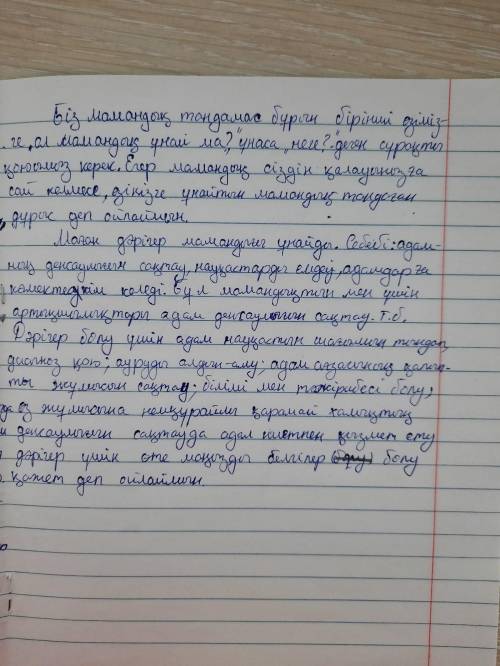 Біз мамандық таңдамас бұрын бірінші өзіміз-
ге, ол мамандық ұнай ма? "ұнаса" неге?" деген сұрақты
қоюымыз керек. Егер мамандық сіздің қалауыңызға
сай келмесе, өзіңізге ұнайтын мамандық таңдаған
дұрыс деп ойлаймын.
Маған дәрігер мамандығы ұнайды. Себебі: адам-
ның денсаулығын сақтау, науқастарды емдеу, адамдарға
көмектескім келеді. Бұл мамандықтың мен үшін
артықшылықтары адам денсаулығын сақтау. т.б.
Дәрігер болу үшін адам науқастың шағымын тыңдап,
диагноз қою; ауруды алдын-алу; адам ағзасының қалып-
ты жұмысын сақтау; білімі мен тәжірибесі болу;
өз жұмысына немқұрайлы қарамай халықтың
денсаулығын сақтауда адал ниетпен қызмет ету
дәрігер үшін өте маңызды белгілер болу
қажет деп ойлаймын.